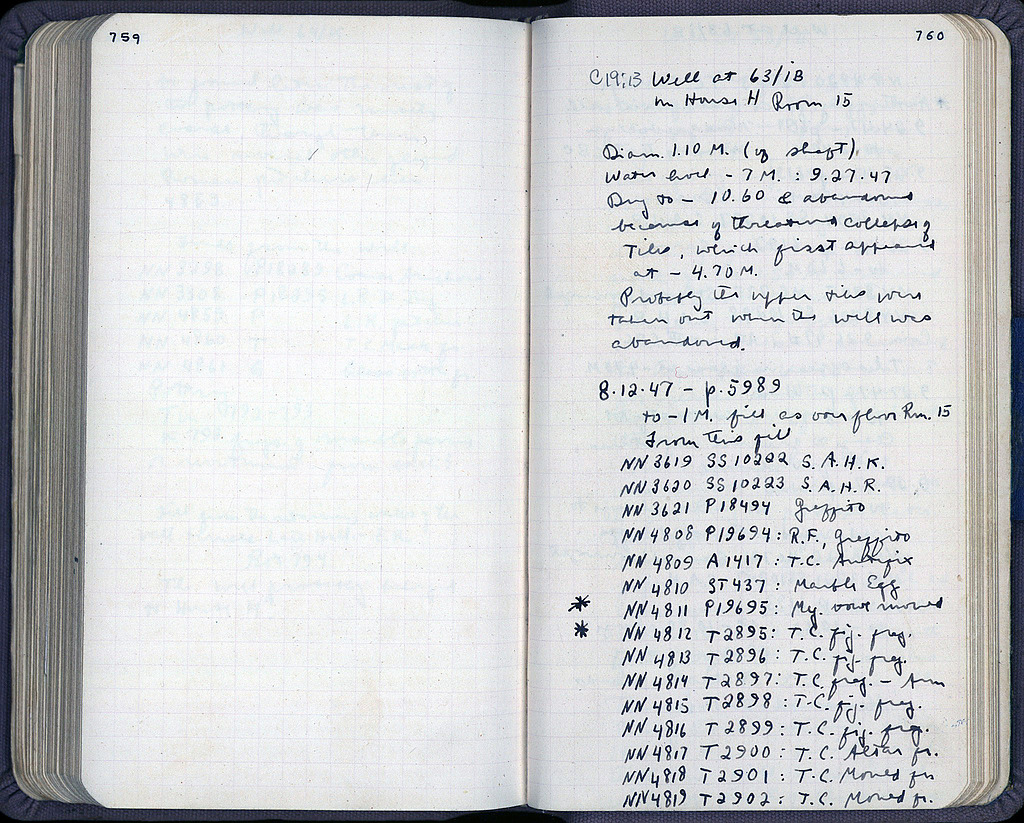 759
760
C 19:13 Well at 63/ΙΒ
in House H Room 15
Diam. 1.10 M. (of shaft).
Water level - 7 M. : 9.27.47
Dug to - 10.60 & abandoned
because of threatened collapse of
Tiles, which first appeared
at - 4.70 M.
Probably the upper tiles were
taken out when the well was
abandoned.
8.12.47 - p. 5989
to -1 M. fill as over floor Rm. 15
From this fill
NN 3619 SS 10222 S.A.H.K.
NN 3620 SS 10223 S.A.H.R.
NN 3621 P 18494 Graffito
NN 4808 P 19694 : R.F., Graffito
NN 4809 A 1417 : T.C. Antefix
NN 4810 ST 437 : Marble Egg
* NN 4811 P 19695 : My.
* NN 4812 T 2895 : T.C. fig. frag.
NN 4813 T 2896 : T.C. fig. frag.
NN 4814 T 2897 : T.C. frag. - Arm
NN 4815 T 2898 : T.C. fig. frag.
NN 4816 T 2899 : T.C. fig. frag.
NN 4817 T 2900 : T.C. Altar fr.
NN 4818 T 2901 : T.C. Mould fr.
NN 4819 T 2902 : T.C. Mould fr.